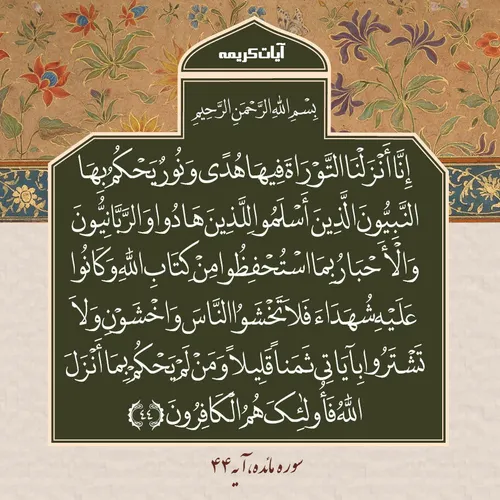 آیات کریمه
بِسْمِ اللهِ الرَّحْمَنِ الرَّحِيمِ
إِنَّا أَنْزَلْنَا التَّوْرَاةَ فِيهَا هُدًى وَنُورٌ يَحْكُمُ بِهَا
النَّبِيُّونَ الَّذِينَ أَسْلَمُوا لِلَّذِينَ هَادُوا وَالرَّبَّانِيُّونَ
وَالْأَحْبَارُ بِمَا اسْتُحْفِظُوا مِنْ كِتَابِ اللهِ وَكَانُوا
عَلَيْهِ شُهَدَاءَ فَلَا تَخْشَوُا النَّاسَ وَاخْشَوْنِ وَلَا
تَشْتَرُوا بِآيَاتِي ثَمَناً قَلِيلاً وَمَنْ لَمْ يَحْكُمْ بِمَا أَنْزَلَ
اللهُ فَأُولَئِكَ هُمُ الْكَافِرُونَ ﴿۴۴﴾
سوره مائده، آیه ۴۴